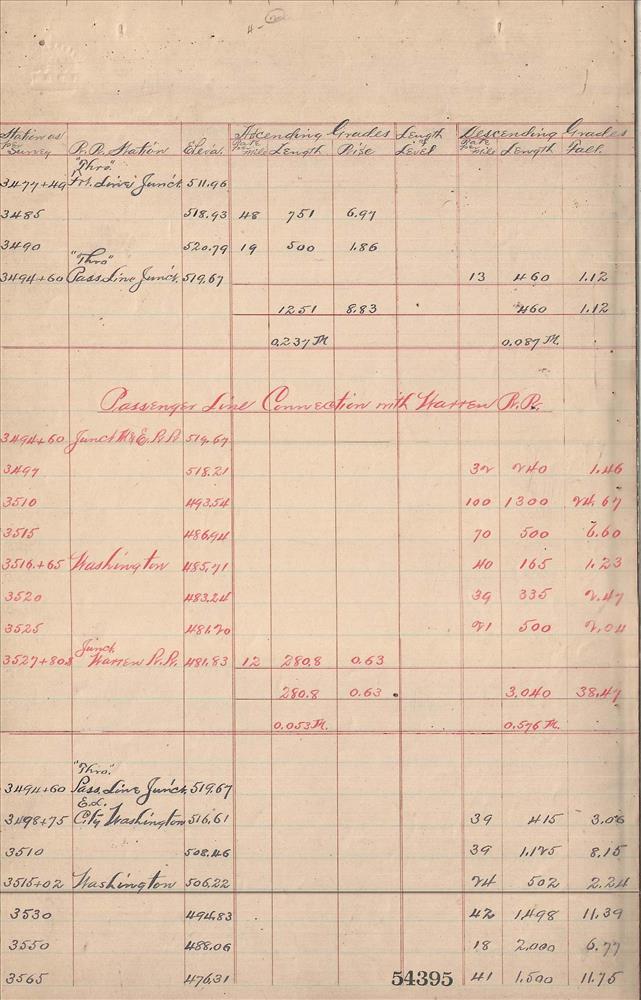 4-
Station as per Survey R.R. Station Elevat. Ascending Grades Length of Level Descending Grades
Rate per Mile Length Rise Rate per Mile Length Fall.
"Thro"
3477+49 Frt. Line Junct. 511.96
3485 518.93 48 751 6.97
3490 520.79 19 500 1.86
"Thro"
3494+60 Pass. Line Junct. 519.67 13 460 1.12
1251 8.83 460 1.12
0.237 M. 0.087 M.
Passenger Line Connection with Warren R.R.
3494+60 Junct. M&E. R.R. 519.67
3497 518.21 32 240 1.46
3510 493.54 100 1300 24.67
3515 486.94 70 500 6.60
3516+65 Washington 485.71 40 165 1.23
3520 483.24 39 335 2.47
3525 481.20 21 500 2.04
Junct.
3527+80.8 Warren R.R. 481.83 12 280.8 0.63
280.8 0.63 3.040 38.47
0.053 M. 0.576 M.
"Thro."
3494+60 Pass. Line Junct. 519.67
E.L.
3498+75 City Washington 516.61 39 415 3.06
3510 508.46 39 1,125 8.15
3515+02 Washington 506.22 24 502 2.24
3530 494.83 42 1498 11.39
3550 488.06 18 2,000 6.77
3565 476.31 41 1,500 11.75
54395